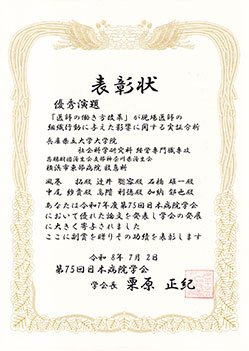 表彰状
優秀演題
「医師の働き方改革」が現場医師の
組織行動に与えた影響に関する実証分析
兵庫県立大学大学院
社会科学研究科 経営専門職専攻
恩賜財団済生会支部神奈川県済生会
横浜市東部病院 救急科
風巻 拓殿 辻井 聡容殿 石橋 雄一殿
中尾 紗貴殿 高階 利徳殿 加納 郁也殿
あなたは令和7年度第75回日本病院学会
において優れた論文を発表し学会の発展
に大きく寄与されました
ここに副賞を贈りその功績を表彰します
令和 8年 7月 2日
第75回日本病院学会
学会長 栗原 正紀